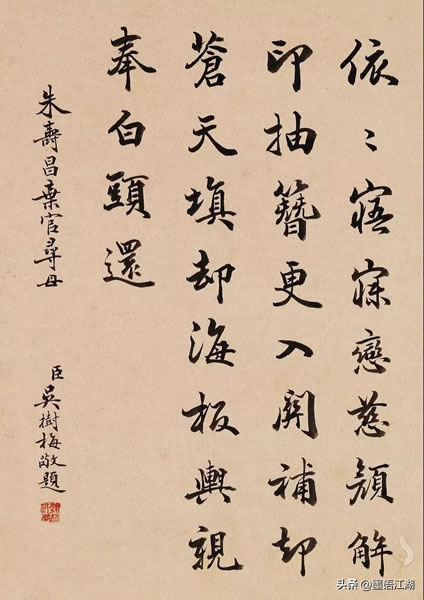 依〻寤寐戀慈顏解
印抽簪更入關補却
蒼天填却海板輿親
奉白頭還
朱壽昌棄官尋母
臣吳樹梅敬題
头条 @墨语江湖